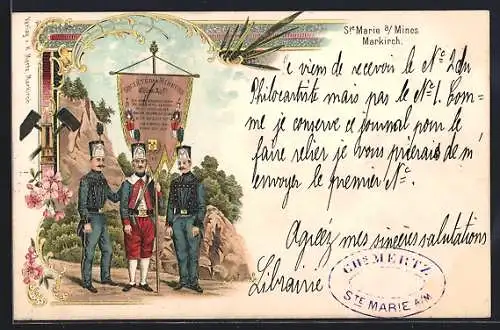 Ste Marie a/ Mines
Markirch.
Je viens de recevoir le No 2 du
Philocartiste mais pas le No 1. Com-
me je conserve ce journal pour le
faire relier je vous prierais de m'
envoyer le premier No.
Agréez mes sincères salutations
Librairie
CH. MERTZ
STE MARIE A/M